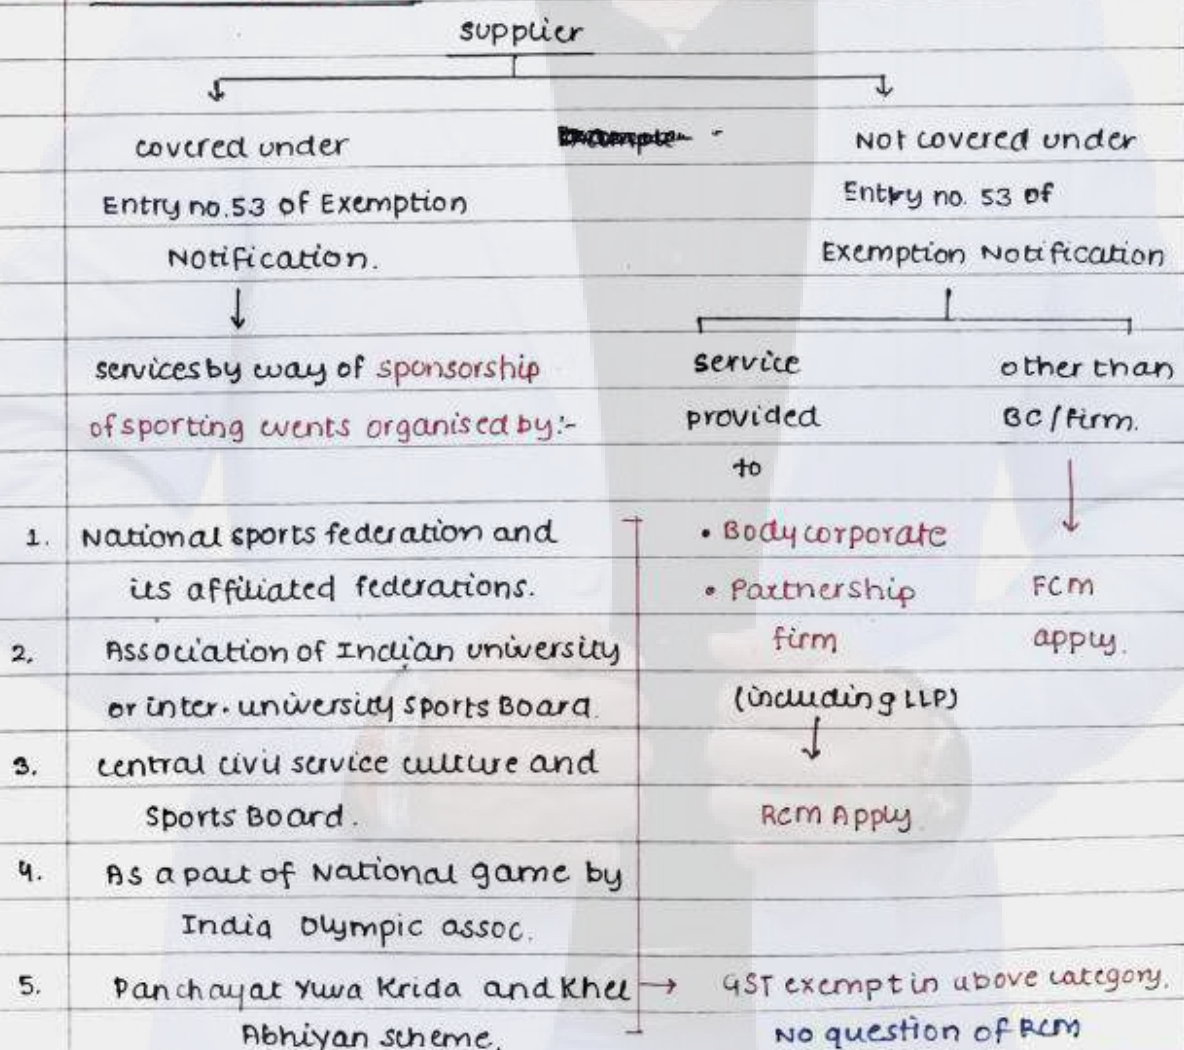 supplier
covered under
Entry no.53 of Exemption
Notification.
services by way of sponsorship
of sporting events organised by:-
1. National sports federation and
its affiliated federations.
2. Association of Indian university
or inter. university sports Board.
3. central civil service culture and
Sports Board.
4. As a part of National game by
India Olympic assoc.
5. Panchayat Yuva Krida and Khel
Abhiyan scheme.
Not covered under
Entry no. 53 of
Exemption Notification
service
provided
to
• Body corporate
• Partnership
firm
(including LLP)
RCM Apply
other than
BC/Firm.
FCM
apply.
→ GST exempt in above category.
No question of RCM